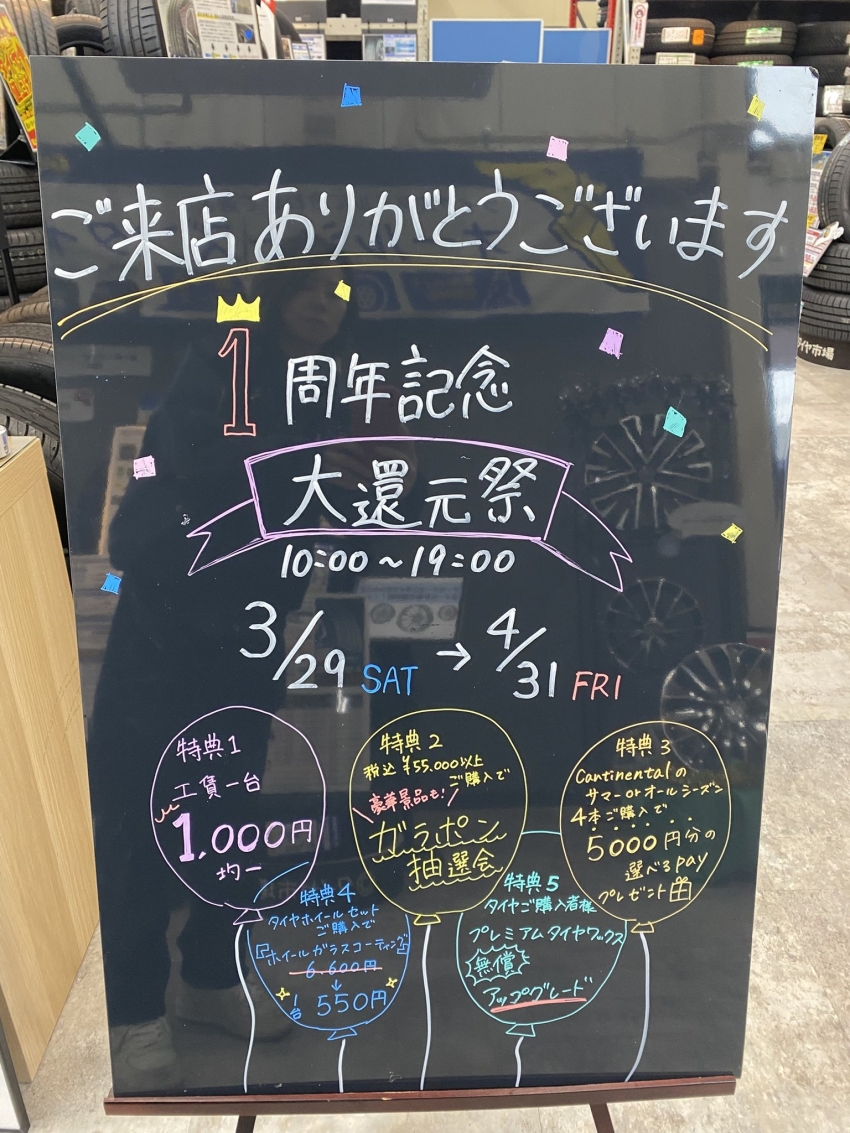 ご来店ありがとうございます
1周年記念
大還元祭
10:00～19:00
3/29 SAT → 4/31 FRI
特典1
工賃一台
1,000円
均一
特典2
税込¥55,000以上
ご購入で
豪華景品も!
ガラポン
抽選会
特典3
Cantinentalの
サマーorオールシーズン
4本ご購入で
5000円分の
選べるpay
プレゼント
特典4
タイヤホイールセット
ご購入で
『ホイールガラスコーティング』
6,600円
↓
1台 550円
特典5
タイヤご購入者様
プレミアムタイヤワックス
無償
アップグレード
タイヤ市場